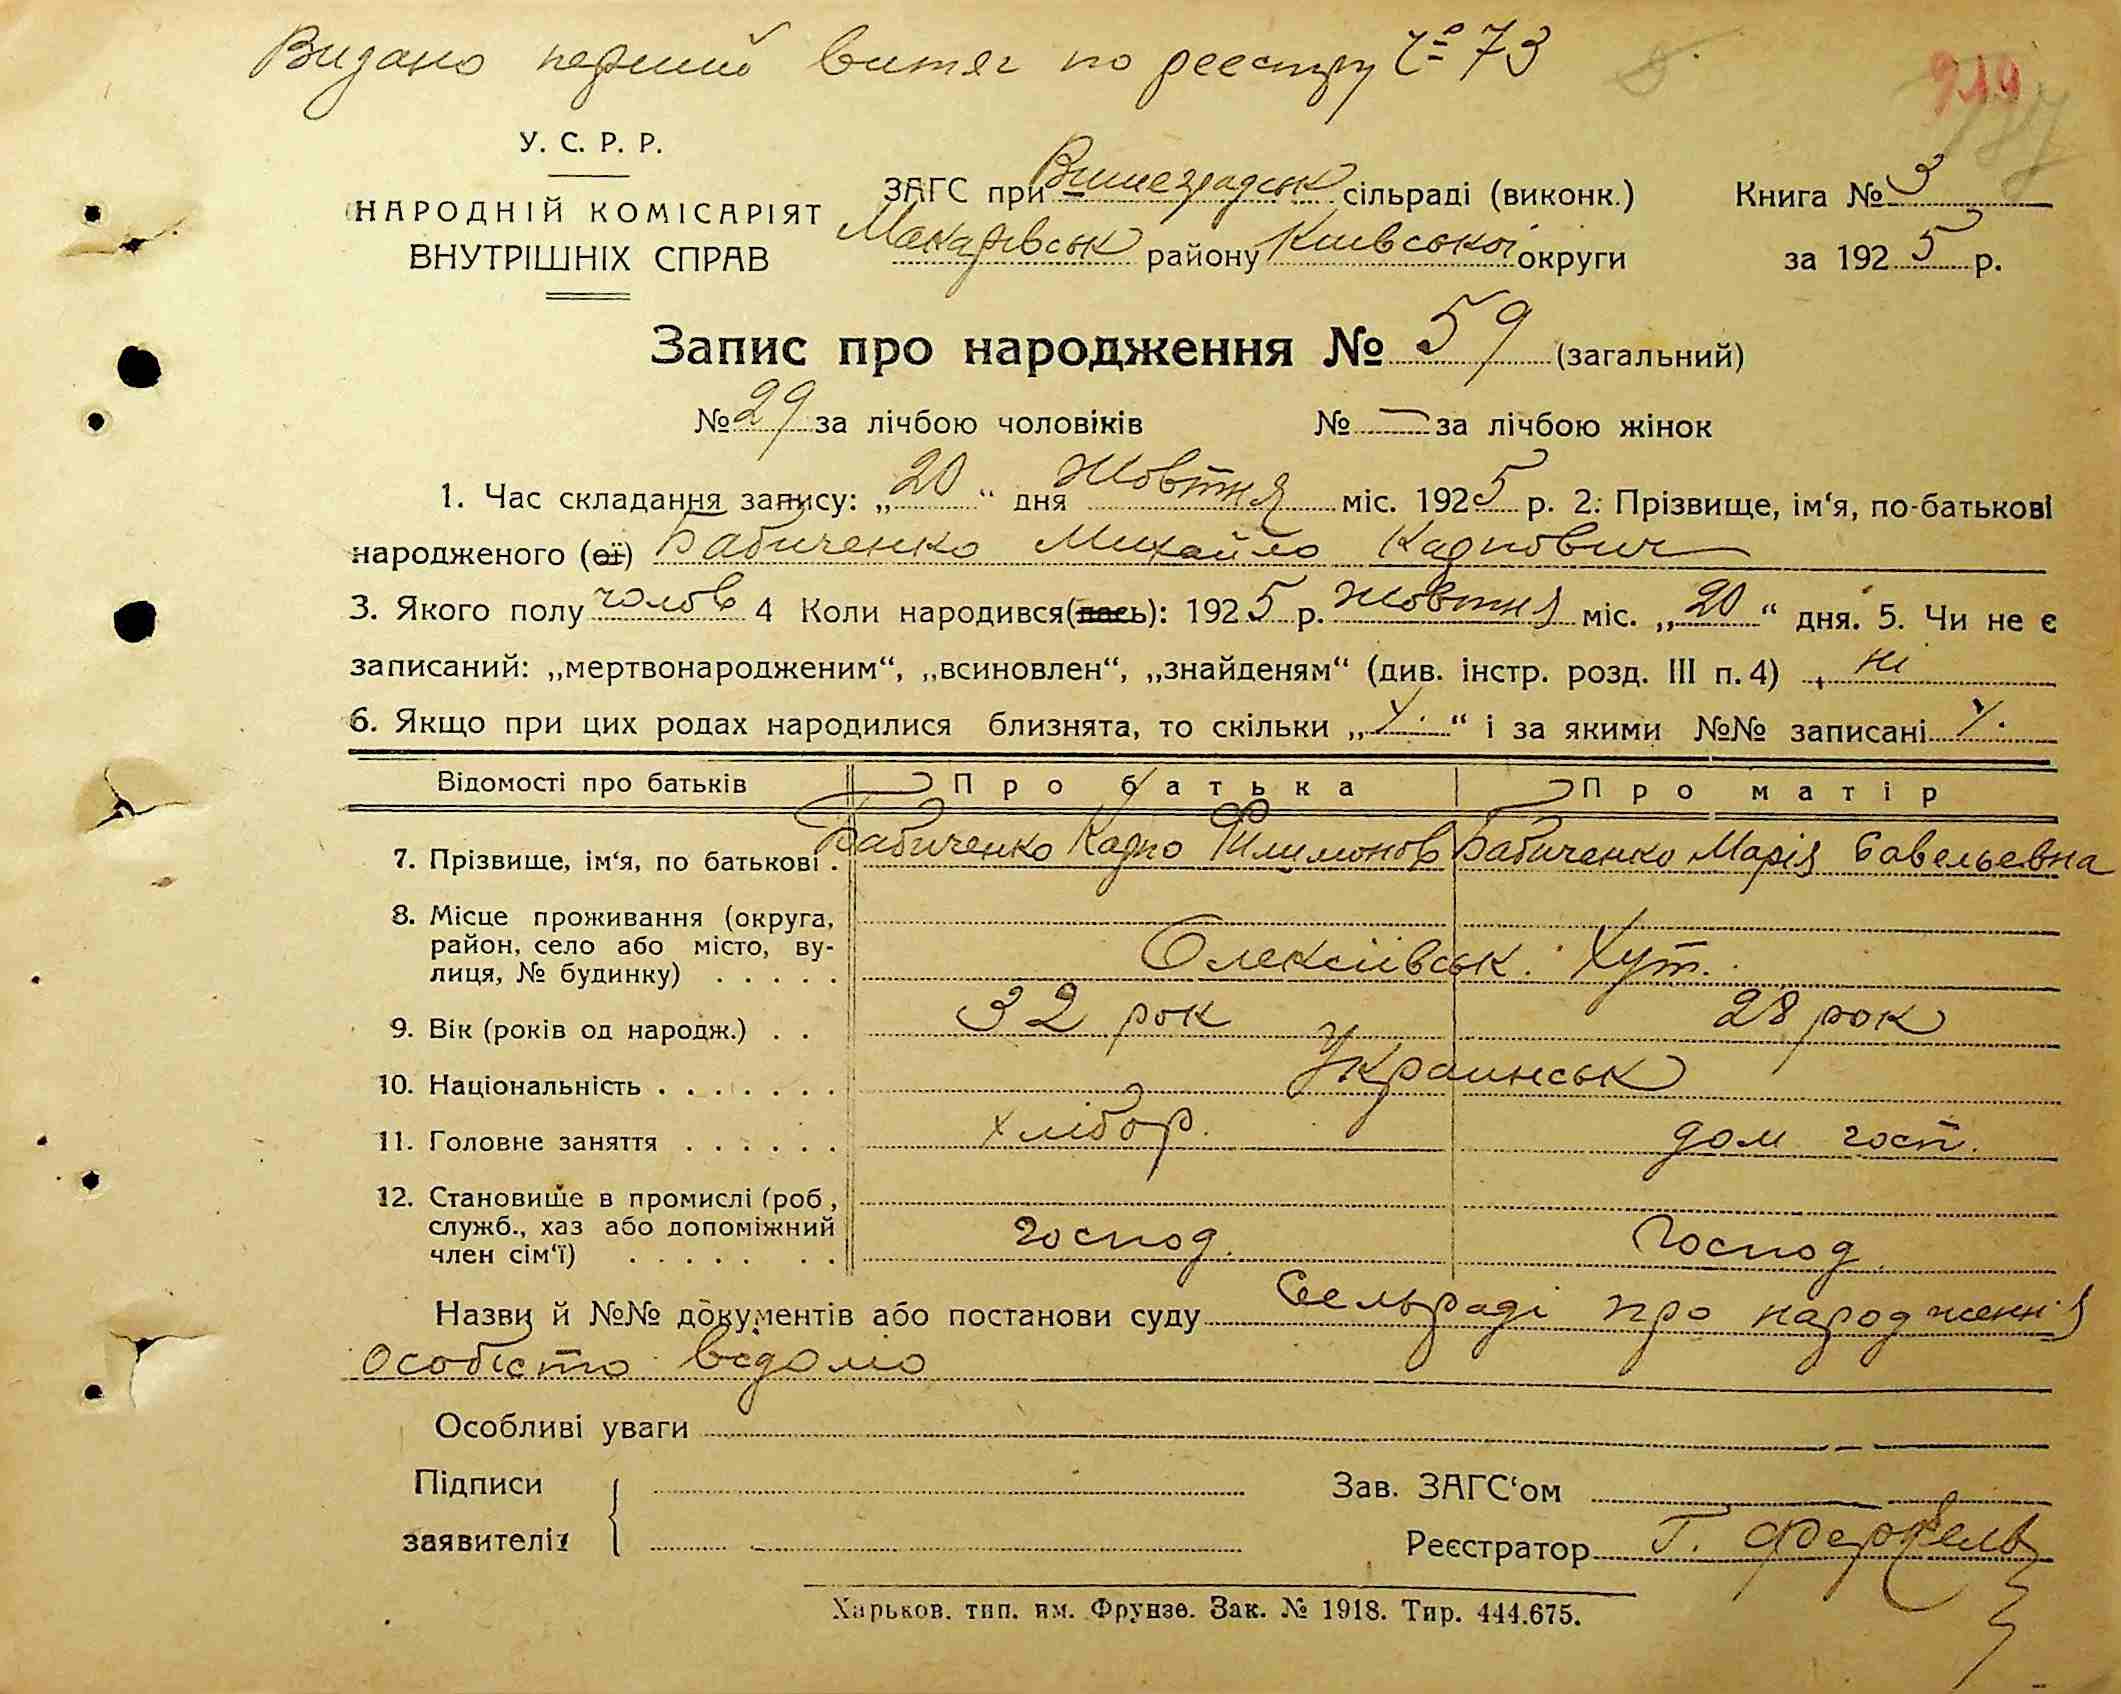 Видано перший витяг по реестру № 73
У. С. Р. Р.
НАРОДНІЙ КОМІСАРІЯТ
ВНУТРІШНІХ СПРАВ
ЗАГС при Вишеградськ сільраді (виконк.)
Макарівськ району Киівськоі округи
Книга № 3
за 1925 р.
Запис про народження № 59 (загальний)
№ 29 за лічбою чоловіків № — за лічбою жінок
1. Час складання запису: „20“ дня Жовтня міс. 1925 р. 2: Прізвище, ім‘я, по-батькові
народженого (ої) Бабиченко Михайло Карпович
3. Якого полу чолов 4 Коли народився(лась): 1925 р. Жовтня міс. „20“ дня. 5. Чи не є
записаний: „мертвонародженим“, „всиновлен“, „знайденям“ (див. інстр. розд. III п. 4) ні
6. Якщо при цих родах народилися близнята, то скільки „ “ і за якими №№ записані
Відомості про батьків Про батька Про матір
7. Прізвище, ім‘я, по батькові . Бабиченко Карпо Филимонов Бабиченко Марія Савельевна
8. Місце проживання (округа,
район, село або місто, ву-
лиця, № будинку) . . . . . Олексіівськ. Хут.
9. Вік (років од народж.) . . 32 рок 28 рок
10. Національність . . . . . . . Украинськ
11. Головне заняття . . . . . . хлібор. дом. госп.
12. Становище в промислі (роб,
служб., хаз або допоміжний
член сім‘ї) . . . . . . . господ. Господ.
Назви й №№ документів або постанови суду Сельраді про народження
особисто відомо
Особливі уваги
Підписи
заявителів
Зав. ЗАГС‘ом
Реєстратор Г.
Харьков. тип. им. Фрунзе. Зак. № 1918. Тир. 444.675.